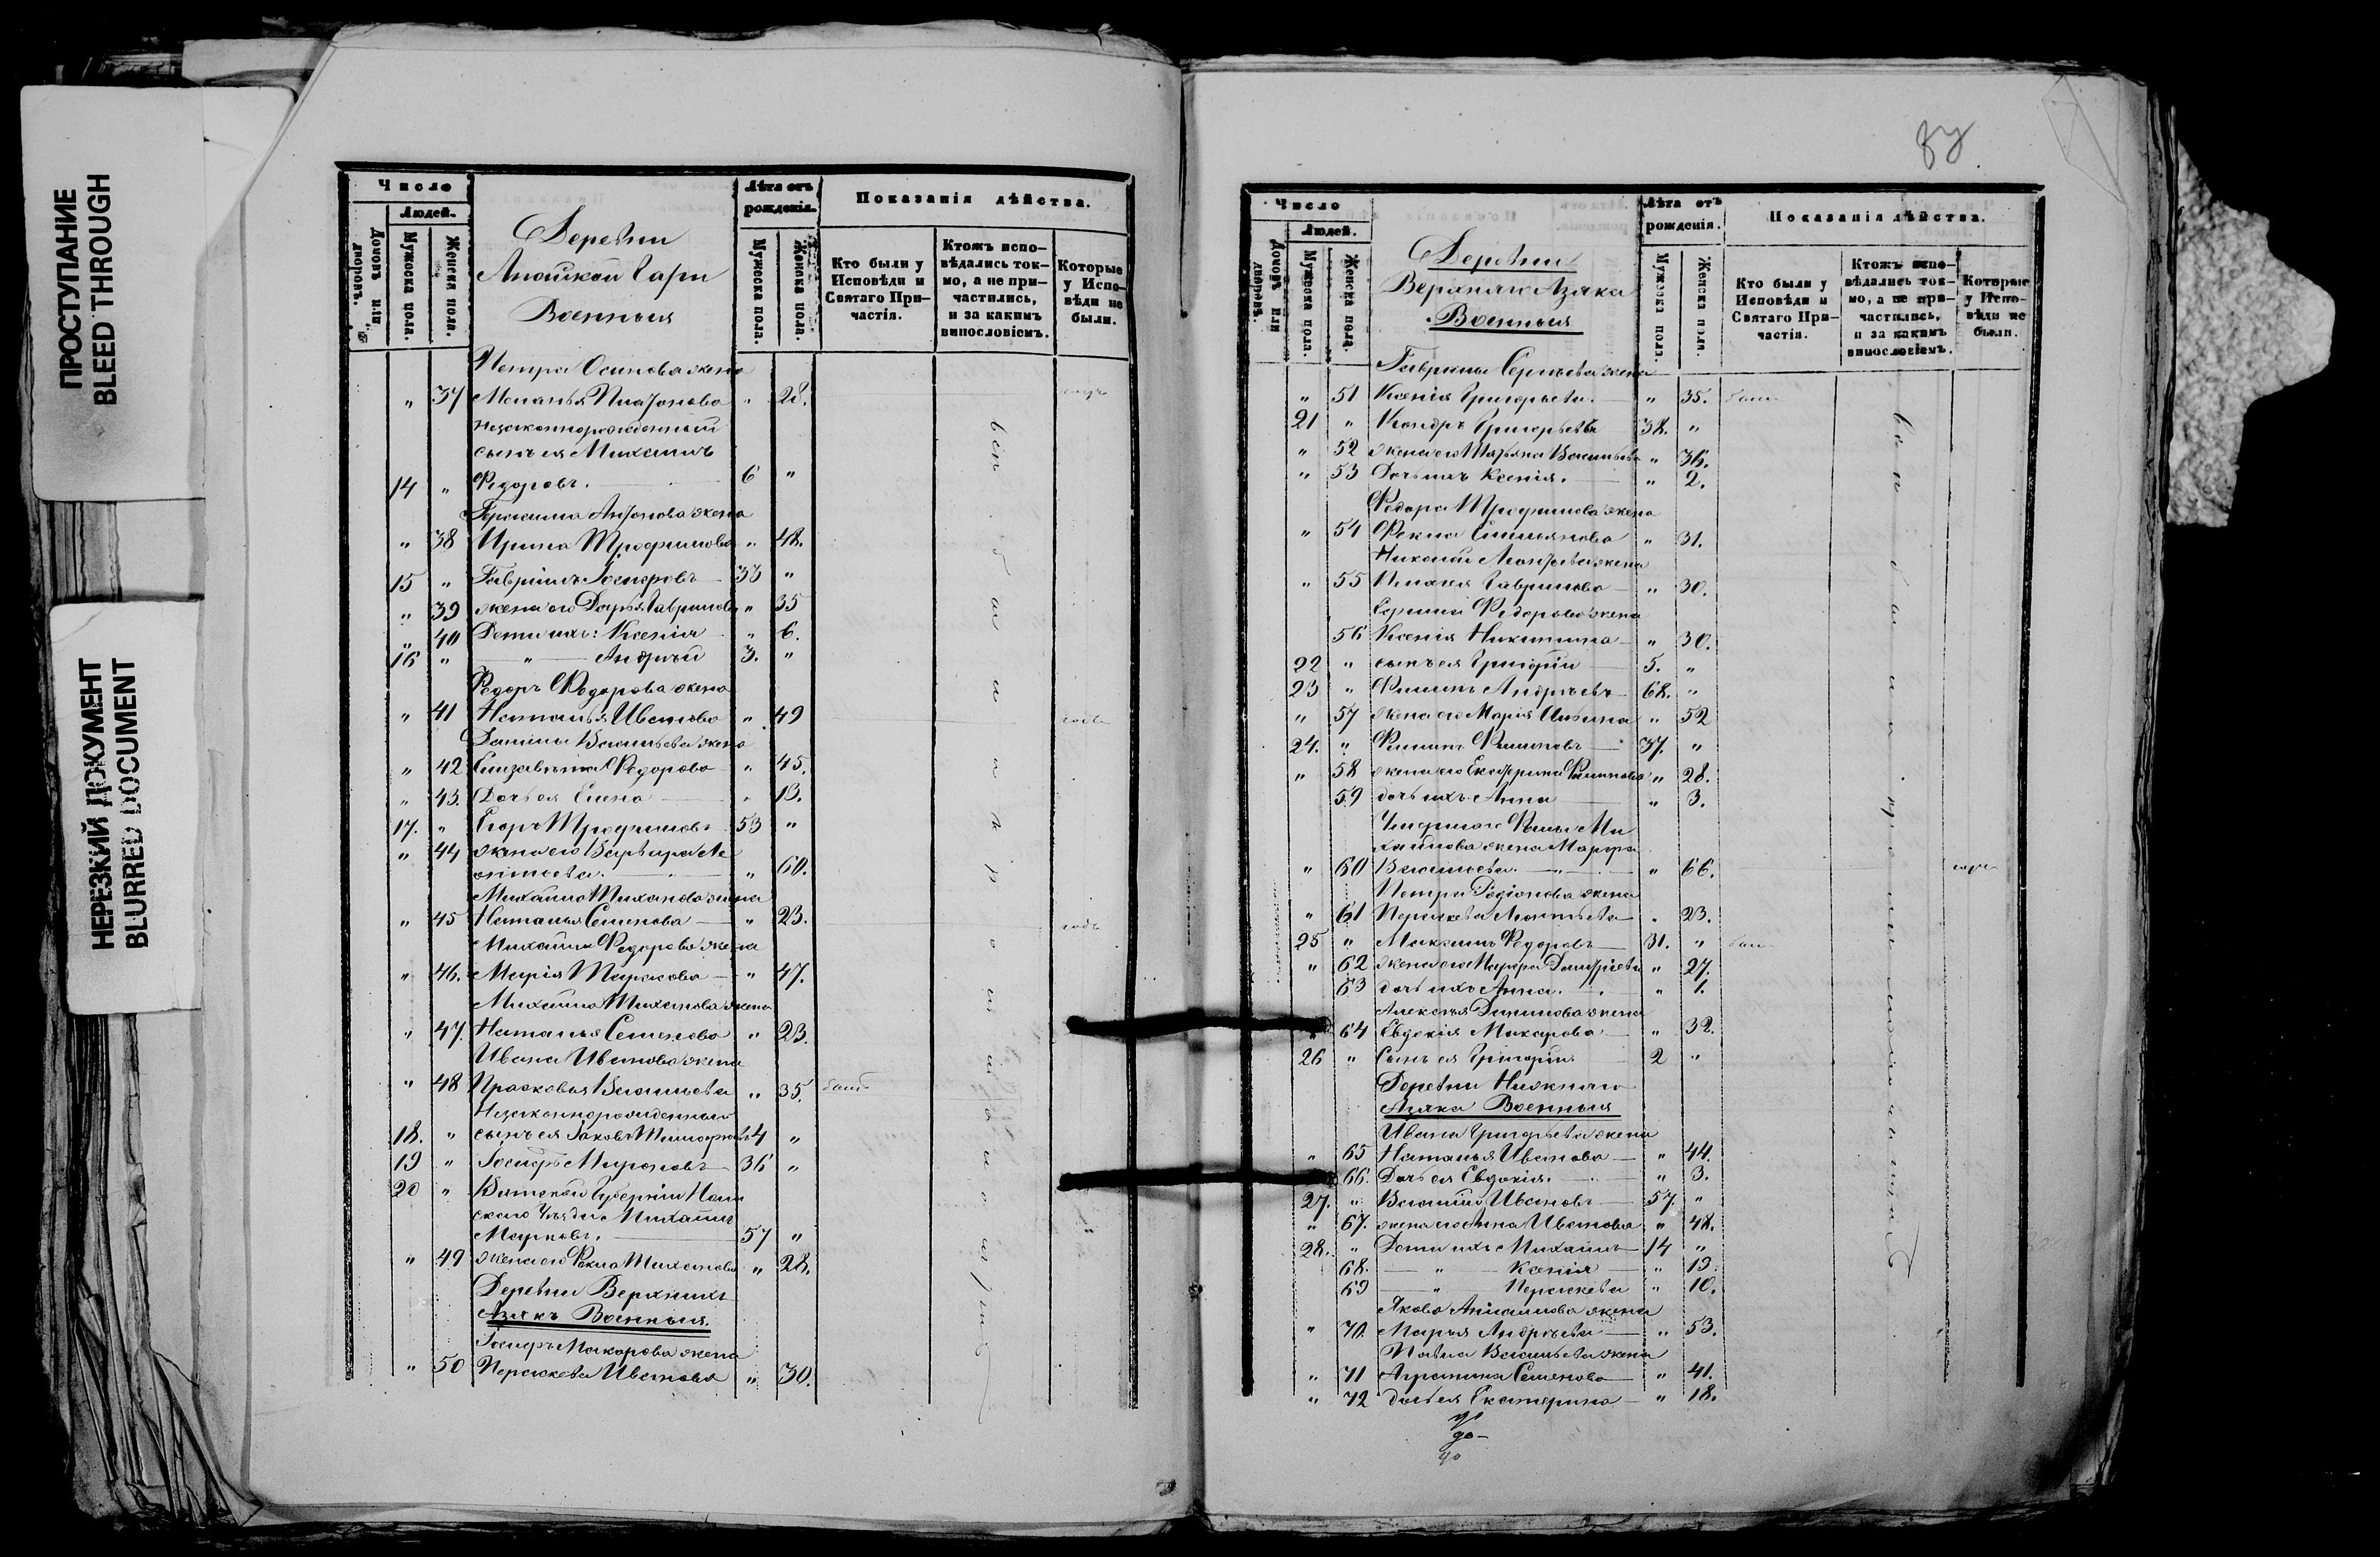 ПРОСТУПАНИЕ
BLEED THROUGH
НЕРЕЗКИЙ ДОКУМЕНТ
BLURRED DOCUMENT
Число
Людей.
Домовъ или дворовъ.
Мужеска пола.
Женска пола.
Деревни
Гари
Военныя
Лѣта отъ рожденія.
Мужеска пола.
Женска пола.
Показанія дѣйства.
Кто были у Исповѣди и Святаго Причастія.
Ктожъ исповѣдались токмо, а не причастились, и за какимъ винословіемъ.
Которые у Исповѣди не были.
Петра Осипова жена
" 37 Меланья Платонова " 28.
Незаконнорожденный
сынъ ея Михаилъ
14 " Федоровъ. 6 "
Герасима Антонова жена
" 38 Ирина Трофимова " 48.
15 " Гавріилъ Іосифовъ 33 "
" 39 жена его Дарья Гаврилова " 35
" 40 Дети ихъ: Ксенія " 6.
16 " " Андрей 3. "
Федоръ Федорова жена
" 41 Наталья Иванова " 49
Данилы Васильева жена
" 42 Елизавета Федорова " 45.
" 43. Дочь ея Елена " 13.
17. " Егоръ Трофимовъ 53 "
" 44 жена его Варвара Ле
онтьева. " 60.
Михайло Михайлова жена
" 45 Наталья Семенова " 23.
Михайла Федорова жена
" 46. Марія Тарасова " 47.
Михайло Михайлова жена
" 47. Наталья Семенова " 23.
Ивана Иванова жена
" 48 Прасковья Васильева " 35.
Незаконнорожденный
18. " сынъ ея Іаковъ Тимофеевъ 4 "
19 " Іосифъ Мироновъ 36 "
20 " Вятской Губерніи
скаго Уѣзда Михаилъ
Марковъ. 57 "
" 49 жена его Фекла " 28.
Деревни Верхнихъ
Азякъ Военныя.
Іосифъ Макарова жена
" 50 Параскева Иванова " 30.
Число
Людей.
Домовъ или дворовъ.
Мужеска пола.
Женска пола.
Деревни
Верхняго Азяка
Военныя
Лѣта отъ рожденія.
Мужеска пола.
Женска пола.
Показанія дѣйства.
Кто были у Исповѣди и Святаго Причастія.
Ктожъ исповѣдались токмо, а не причастились, и за какимъ винословіемъ.
Которые у Исповѣди не были.
Гаврилы Сергѣева жена
" 51 Ксенія Григорьева. " 35.
21 " Григорьевъ 38. "
" 52 жена его Татьяна Васильева " 36.
" 53 Дочь ихъ Ксенія. " 2.
Федора Трофимова жена
" 54 Фекла Емельянова " 31.
Николай Леонтьева жена
" 55 Пелагея Гаврилова " 30.
Федорова жена
56 Ксенія Никитина " 30.
22 " сынъ ея Григорій 5. "
23 " Филипъ Андреевъ 68. "
" 57 жена его Марія Ильина " 52
24. " Филипъ Филиповъ 37. "
" 58 жена его Екатерина Филипова " 28.
59 дочь ихъ Анна " 3.
Умершаго Ми
хайлова жена Марфа
" 60 Васильева. " 66.
Петра Родіонова жена
" 61 Параскева Леонтьева " 23.
25 " Максимъ Федоровъ 31. "
" 62 жена его Марфа Дмитріева " 27.
63 дочь ихъ Анна. " 1.
Алексея Данилова жена
64 Евдокія Макарова " 32.
26 " Сынъ ея Григорій. 2 "
Деревни Нижняго
Азяка Военныя
Ивана Григорьева жена
" 65 Наталья Иванова " 44.
66. Дочь ея Евдокія. " 3.
27. " Василій Ивановъ 57. "
" 67. жена его Анна Иванова " 48.
28. " Дети ихъ Михаилъ 14 "
68. " Ксенія " 13.
69 " Параскева " 10.
Якова жена
" 70. Марья Андреева " 53.
Павла Васильева жена
" 71 Агрипина Семенова " 41.
" 72 дочь ея Екатерина " 18.